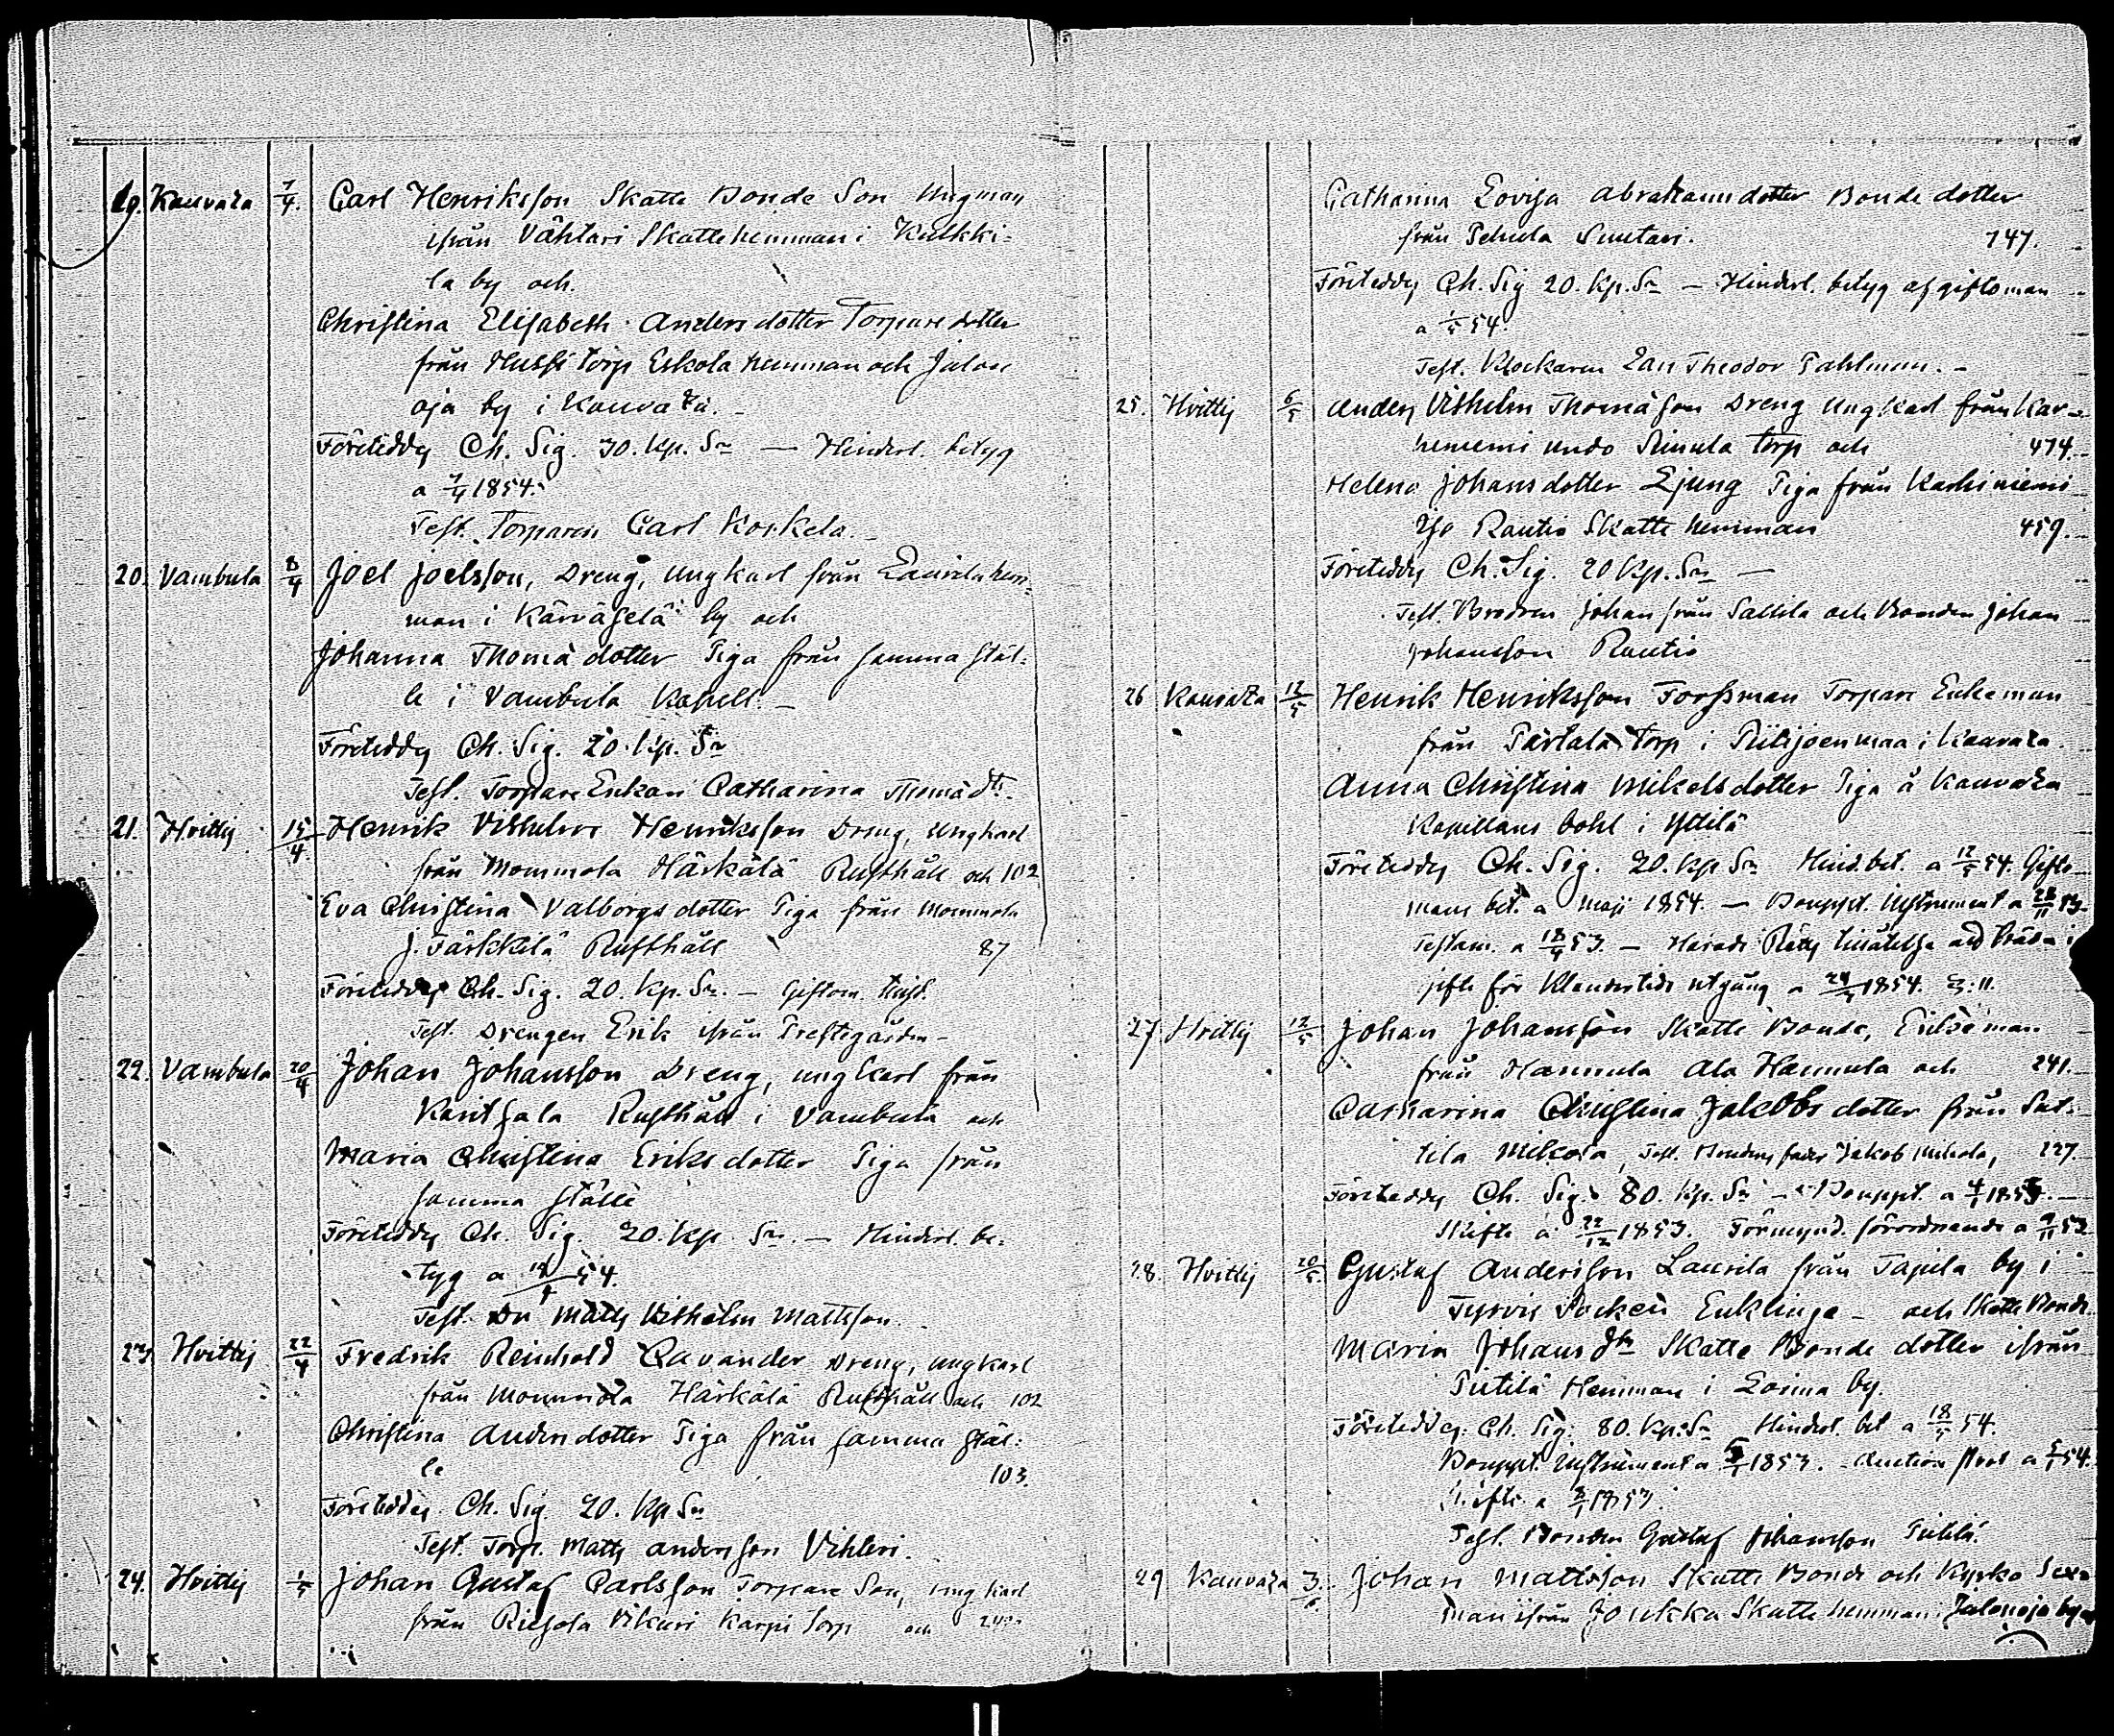 19. Kauvaza 7/4. Carl Henriksson Skatte Bonde Son Ungman
ifrån Vähtari Skattehemman i Kulkki-
la by och.
Christina Elisabeth Andersdotter Torpare dotter
från Hussi torp Eskola hemman och Jalon
oja by i Kauvaza. -
Företeddes Ch. Sig. 30. Kp. Sr — Hinderl. betyg
a 7/4 1854.
Test. Torparen Carl Korkela. -
20. Vambula 8/4 Joel Joelsson, Dreng, Ungkarl från Laurila hem-
man i Kärväselä by och
Johanna Thomædotter Piga från samma stäl-
le i Vambula Kapell. -
Företeddes Ch. Sig. 20. Kp. Sr
Test. Torpare Enkan Catharina Thomædtr.
21. Hvittis 15/4. Henrik Vilhelm Henriksson Dreng, Ungkarl
från Mommola Härkälä Rusthåll och 102
Eva Christina Valborgsdotter Piga från Mommola
J. Färkkilä Rusthåll 87
Företeddes Ch. Sig. 20. Kp. Sr. —
Test. Drengen Erik ifrån Prestegården -
22. Vambula 20/4 Johan Johansson Dreng, ungkarl från
Karitsala Rusthåll i Vambula och
Maria Christina Eriksdotter Piga från
samma ställe
Företeddes Ch. Sig. 20. Kp. Sr. — Hinderl. be-
tyg a 54.
Test. Dr Matts Vilhelm Mattsson.
23. Hvittis 22/4 Fredrik Reinhold Cavander Dreng, ungkarl
från Mommola Härkälä Rusthåll och 102
Christina Andersdotter Piga från samma stäl-
le 103.
Företeddes Ch. Sig. 20. Kp Sr
Test. Torp. Matts Andersson Vihleri.
24. Hvittis 1/5 Johan Gustaf Carlsson Torpare Son, ungkarl
från Riesola Vikari Karpi torp och
Catharina Lovisa Abrahamsdotter Bonde dotter
från Pehula Suutari. 147.
Företeddes Ch. Sig 20. Kp. Sr — Hinderl. betyg af giftoman
a 1/5 54.
Test. Klockaren Theodor Pahlman. -
25. Hvittis 6/5 Anders Vilhelm Thomæson Dreng Ungkarl från Kar-
hiniemi Simula torp och 474.
Helena Johansdotter Ljung Piga från Karhiniemi
Yso Rautio Skatte hemman 459.
Företeddes Ch. Sig. 20 Kp. Sr —
Test. Brodren Johan från Sallila och Bonden Johan
Johansson Rautio
26 Kauvaza 12/5 Henrik Henriksson Forssman Torpare Enkeman
från Pärtala torp i Piilijoenmaa i Kauvaza.
Anna Christina Mikelsdotter Piga å Kauvaza
Kapellans bohl i Yttilä
Företeddes Ch. Sig. 20. Kp Sr Hind. bet. a 12/5 54. Gifto-
mans bet. a Maji 1854. — Bouppt. Instrument a 28/11 53-
Testam. a 53. — Härads Rätts tillåtelse att träda i
gifte för Klandertids utgång a 1854.
27 Hvittis 12/5 Johan Johansson Skatte Bonde, Enkeman
från Hannula Ala Hannula och 241.
Catharina Christina Jakobsdotter från Sal-
lila Mikola, Test. Brudens fader Jakob Mikola, 127.
Företeddes Ch. Sig. 80. Kp. Sr — Bouppt. a —
Skifte a 22/12 1853. Förmynd. förordnande a 53
28. Hvittis 20/5 Gustaf Andersson Laurila från Tajula by i
Tyrvis Socken Enklinge - och Skatte Bonde
Maria Johansdtr Skatte Bonde dotter ifrån
Piitilä Hemman i Loima by.
Företeddes. Ch. Sig. 80. Kp. Sr Hinderl. bet a 18/5 54.
Bouppt. Instrument a 1853. - Auction prot a 54.
Skifte a 1853.
Test. Bonden Gustaf Johansson Piitilä.
29 Kauvaza 3/6. Johan Mattsson Skatte Bonde och Kyrko Sex-
man ifrån Joukka Skatte hemman i Jalonoja by